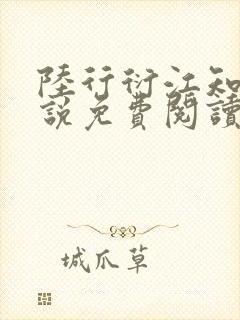 陸行衍江知
說免費閱讀
城爪草